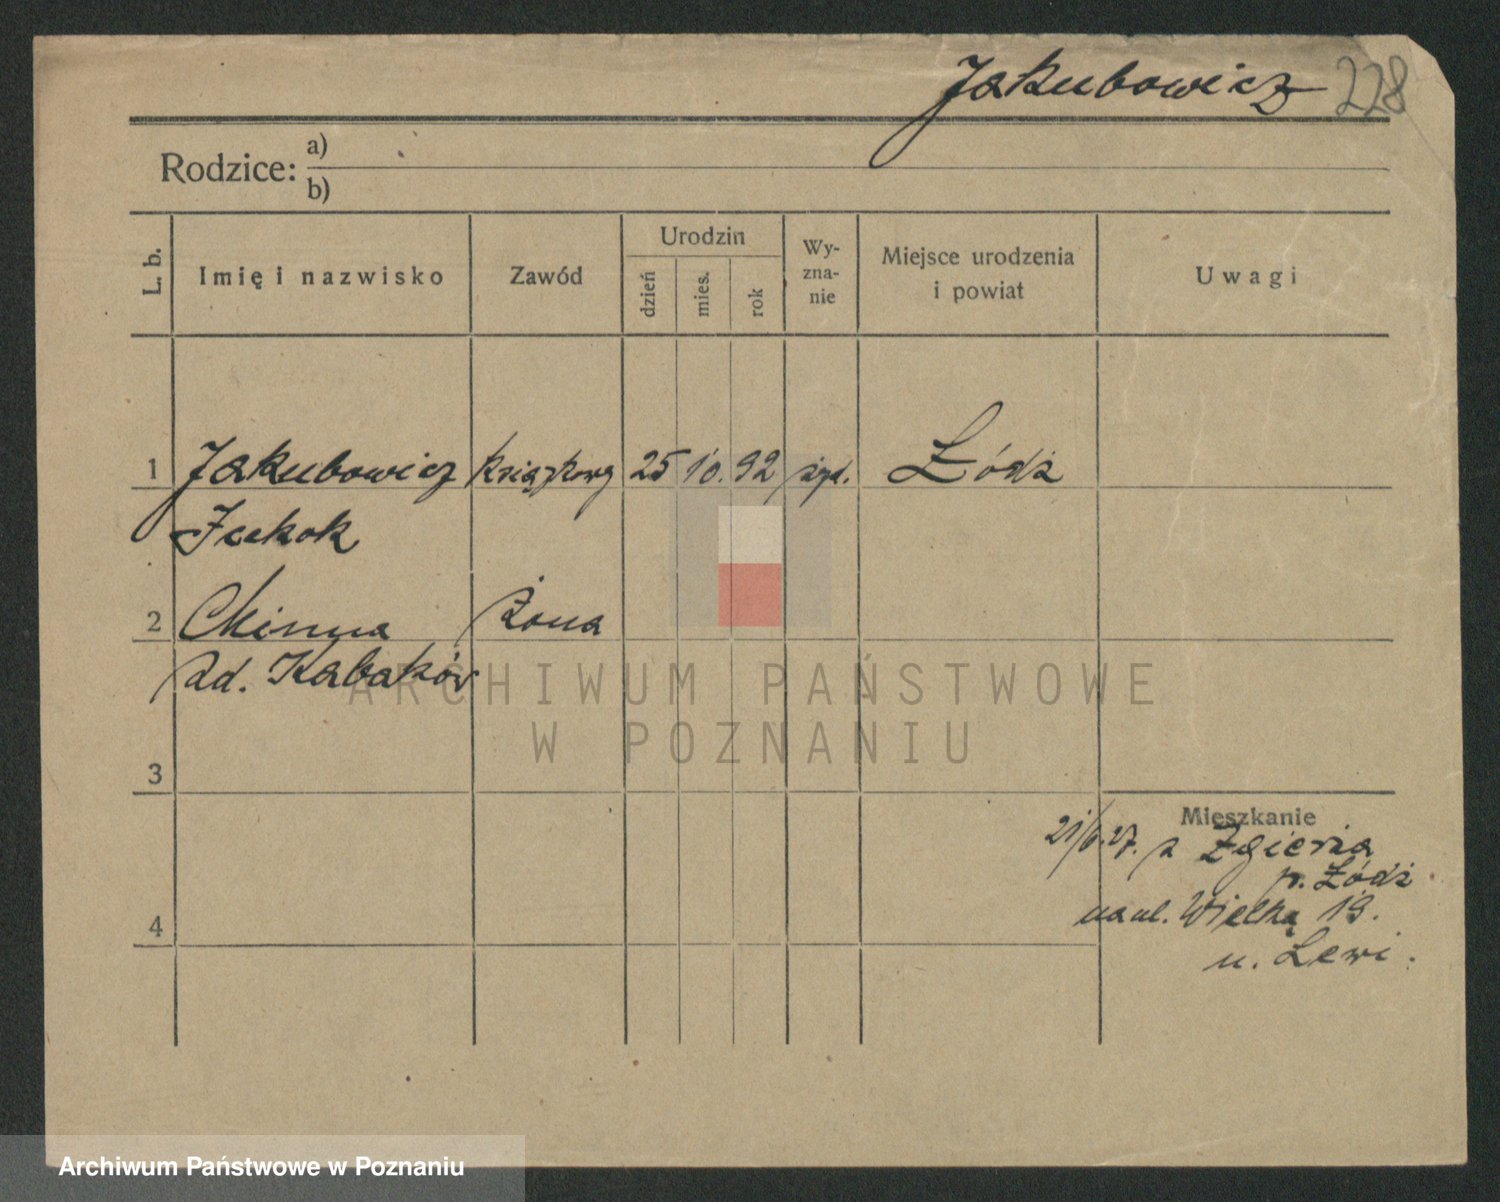 Jakubowicz 228
Rodzice: a)
b)
L. b. Imię i nazwisko Zawód Urodzin dzień mies. rok Wy-zna-nie Miejsce urodzenia i powiat Uwagi
1 Jakubowicz książkowy 25 10. 92 żyd. Łódź
Icekok
2 Chinna żona
zd. Kabaków
3
Mieszkanie
21/6.27. z Zgierza
p. Łódź
4 na ul. Wielką 19.
u. Lewi.
ARCHIWUM PAŃSTWOWE
W POZNANIU
Archiwum Państwowe w Poznaniu